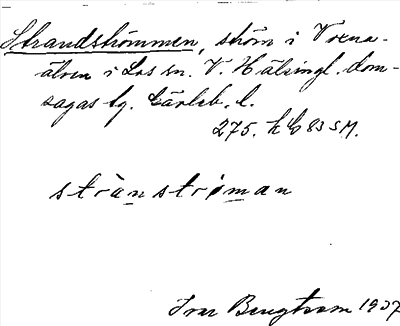 Strandströmmen, ström i Voxna-
älven i Los sn. V. Hälsingl. dom-
sagas tg. Gävleb. l.
275. h C 83 SM.
strànstrøman
Ivar Bengtsson 1937